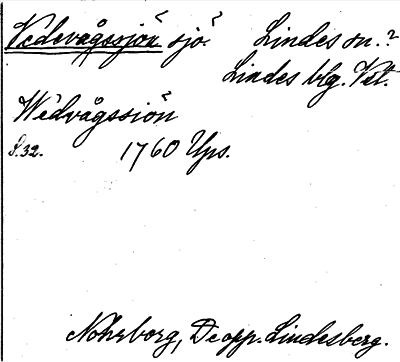 Vedevågssjön sjö. Lindes sn.?
Lindes blg. Vstl.
Wedvågssiön
S. 32. 1760 Ups.
Nohrborg, De opp. Lindesberg.